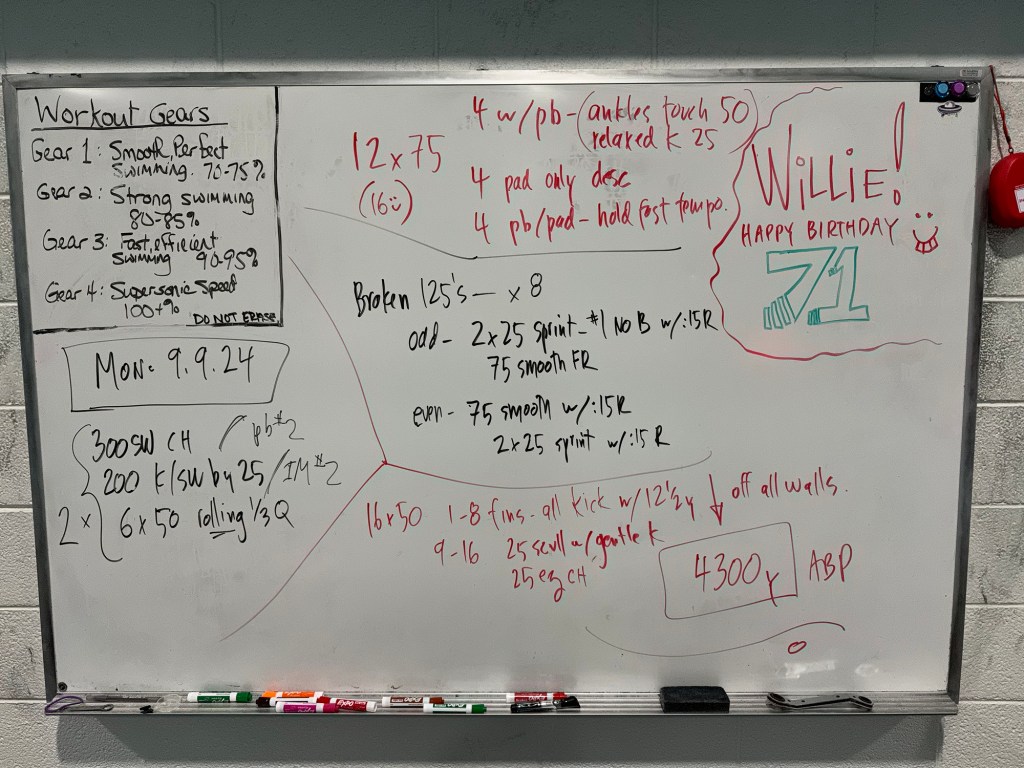 Workout Gears
Gear 1: Smooth, Perfect
Swimming. 70-75%
Gear 2: Strong swimming
80-85%
Gear 3: Fast, efficient
Swimming 90-95%
Gear 4: Supersonic Speed
100+%
DO NOT ERASE
Mon. 9.9.24
300 SW CH / pb #2
200 K/SW by 25 / IM #2
2 x 6 x 50 rolling 1/3 Q
12 x 75
(16)
4 w/pb - (ankles touch 50
relaxed K 25)
4 pad only desc
4 pb/pad - hold fast tempo.
WiLLiE!
HAPPY BIRTHDAY
71
Broken 125's — x 8
odd - 2 x 25 sprint - #1 No B w/:15R
75 smooth FR
even - 75 smooth w/:15R
2 x 25 sprint w/:15R
16 x 50 1-8 fins - all kick w/12 1/2y ↓ off all walls.
9-16 25 scull w/gentle K
25 ez CH
4300y ABP